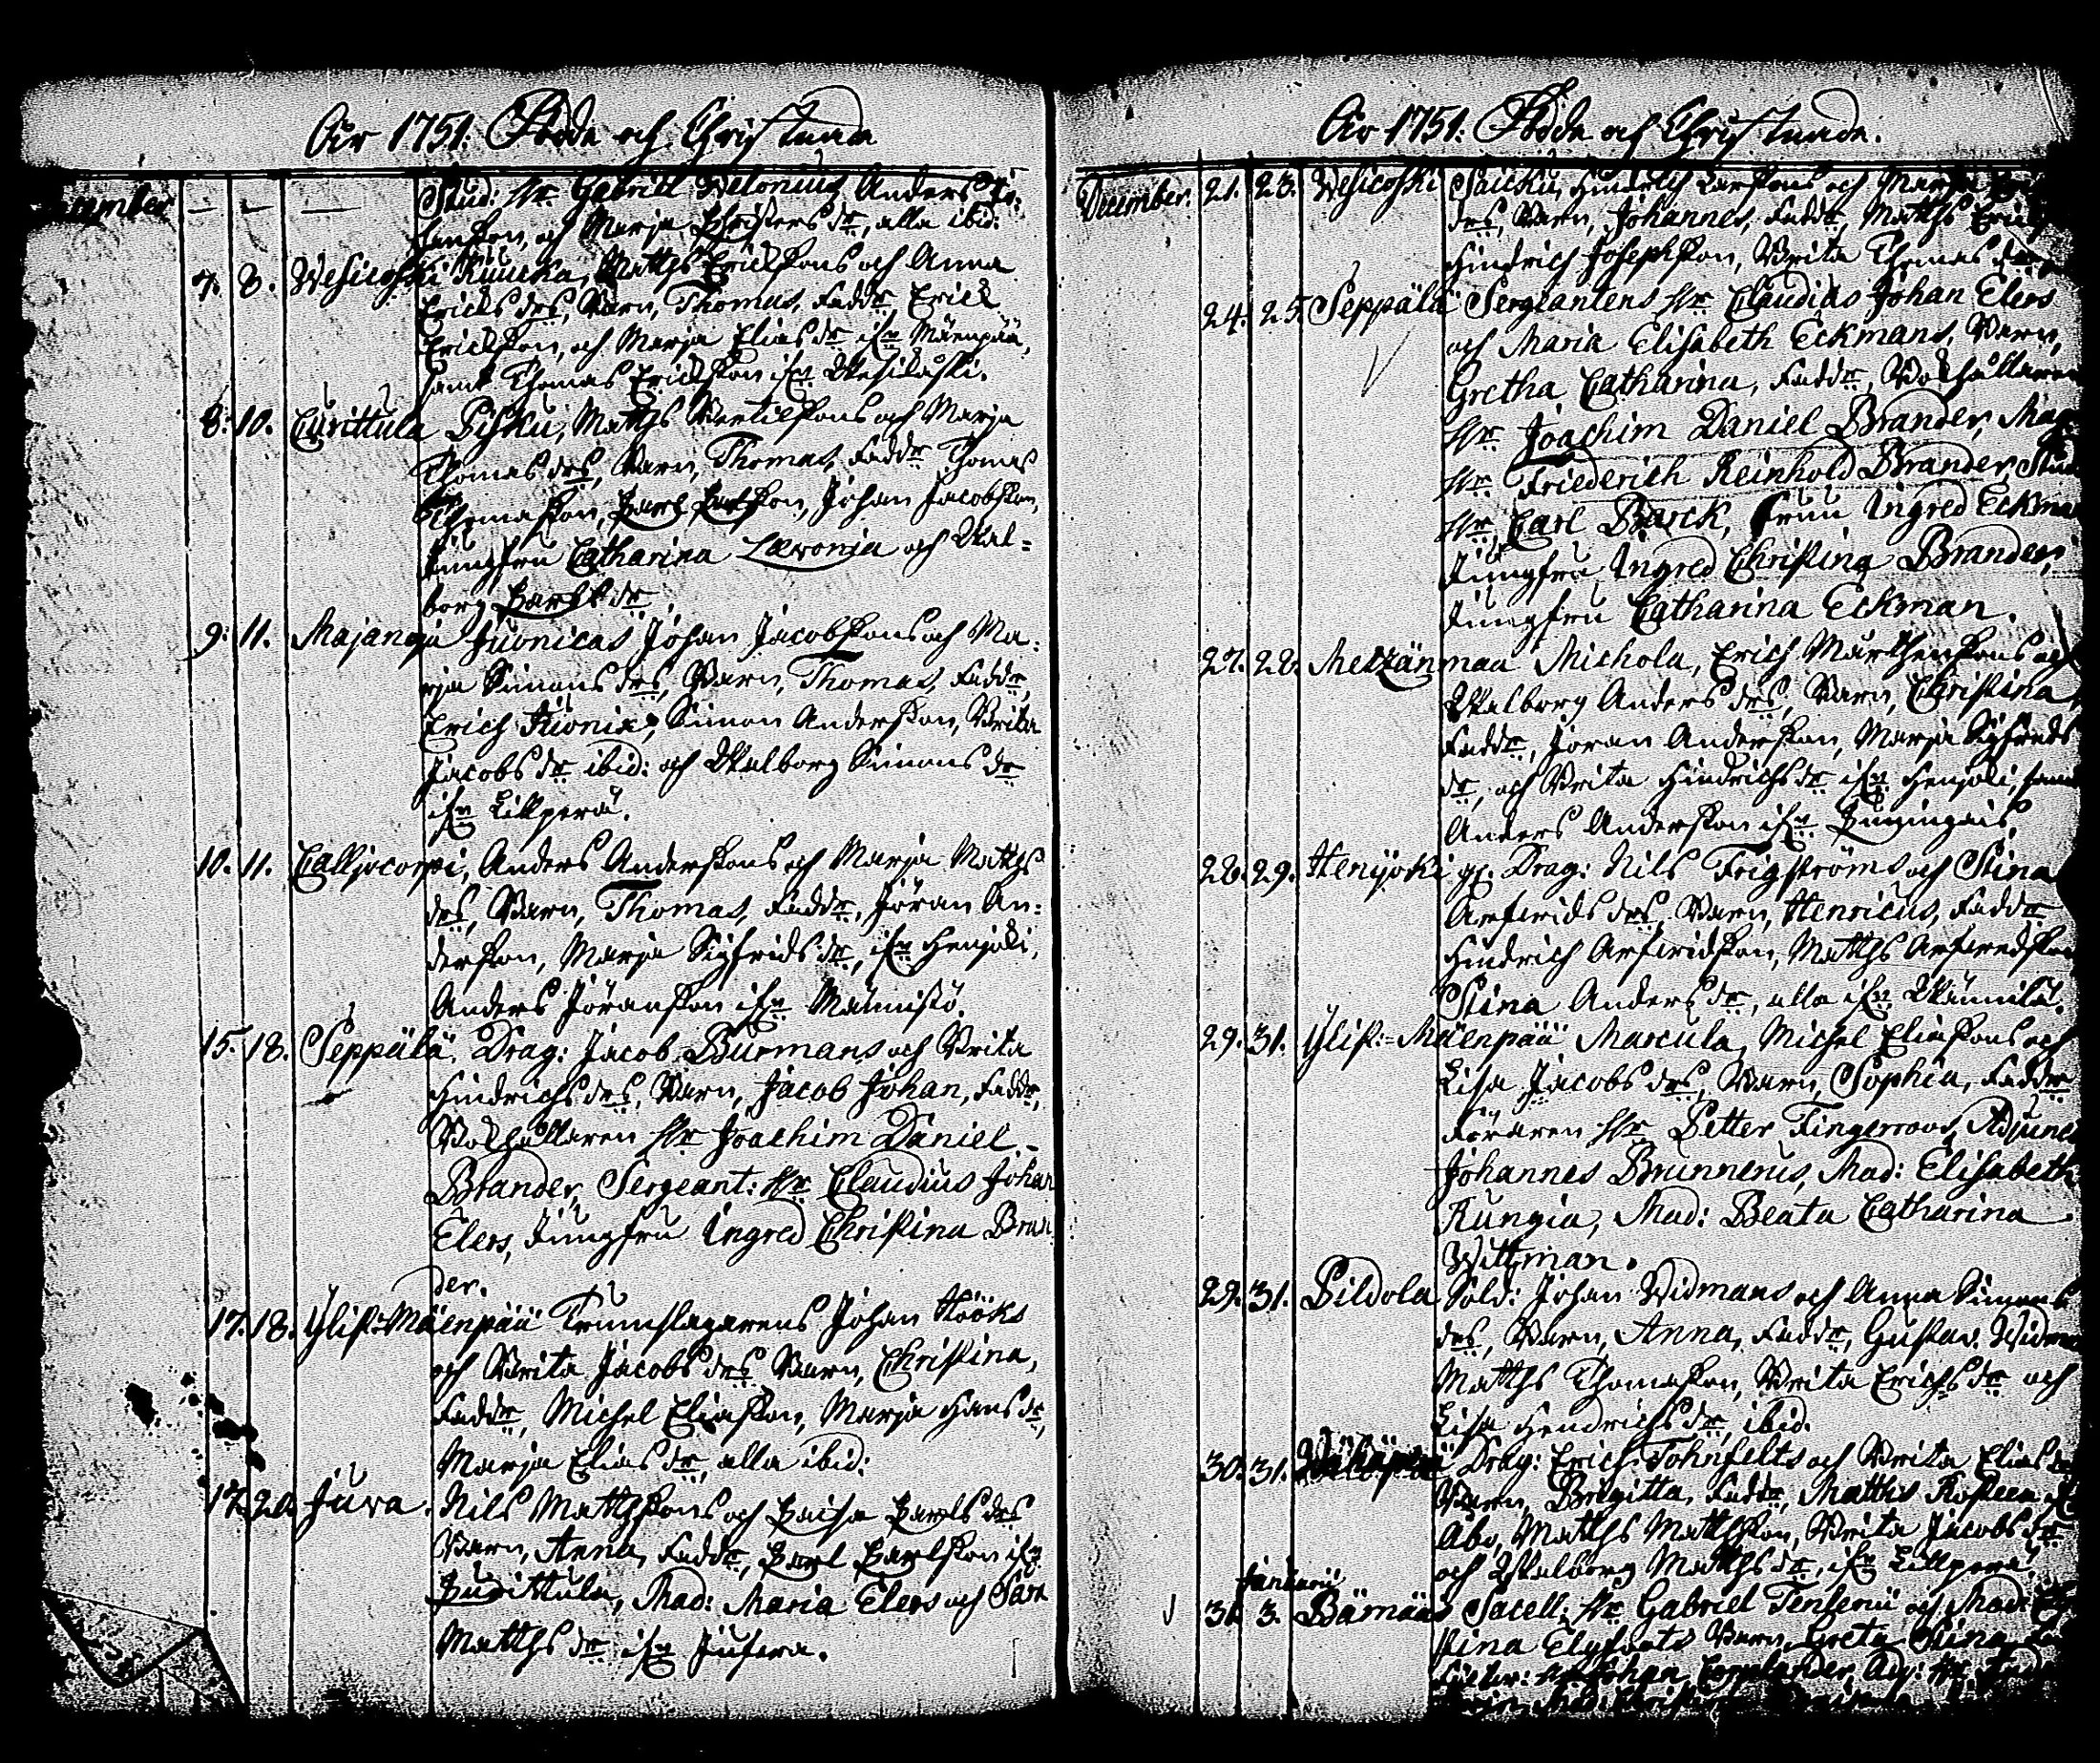 År 1751. Födde och Christnade
Stud: Hr Gabriel Welonius, Anders Jö-
ransson, och Marja Christers dr, alla ibid:
7. 8. Wesicoski Kuucka, Matths Erickssons och Anna
Ericks drs, Barn, Thomas, Faddr Erick
Ericksson, och Marja Elias dr ifrn Mäenpää,
samt Thomas Ericksson ifrn Wesikåski.
8. 10. Curittula Pisku, Matths Bertilssons och Marja
Thomas drs, Barn, Thomas, Faddr Thomas
Thomasson, Carl Carlsson, Johan Jacobsson,
Jungfru Catharina Læwonia och Wal=
borg Carls dr
9. 11. Majanoja Juonicas Johan Jacobssons och Ma-
rja Simons drs, Barn, Thomas, Faddr,
Erich Simon Andersson, Brita
Jacobs dr ibid: och Walborg Simons dr
ifrn Lillperä.
10. 11. Calljocorpi, Anders Anderssons och Marja Matths
drs, Barn, Thomas, Faddr, Jöran An-
dersson, Marja Sigfrids dr, ifrn Henjoki,
Anders Jöransson ifrn Männistö.
15. 18. Seppälä. Drag: Jacob Burmans och Brita
Hindrichs drs, Barn, Jacob Johan, Faddr,
Bokhållaren Hr Joachim Daniel
Brander, Sergeant: Hr Claudius Johan
Elers, Jungfru Ingred Christina Bran
der.
17. 18. Ylis: Mäenpää Trumslagarens Johan Hööks
och Brita Jacobs drs Barn, Christina,
Faddr, Michel Eliasson, Marja Hans dr,
Marja Elias dr, alla ibid:
17. 20. Juva. Nils Mattssons och Caisa Carls drs
Barn, Anna, Faddr, Carl Carlsson ifrn
Curittula, Mad: Maria Elers och Sara
Matths dr ifrn Jufva.
År 1751: Födde och Christnade.
December. 21. 23. Wesicoski Saicku, Hindrich Larssons och Marja
drs, Barn, Johannes, Faddr, Matths
Hindrich Josephsson, Brita Thomas dr
24. 25. Seppälä Sergeantens Hr Claudius Johan Elers
och Maria Elisabeth Eckmans, Barn,
Gretha Catharina, Faddr, Bokhållaren
Hr Joachim Daniel Brander, Mag
Hr Friederich Reinhold Brander, Stud
Hr Carl Barck, Fruu Ingred Eckma
Jungfru Ingred Christina Brander,
Jungfru Catharina Eckman.
27. 28. Metzänmaa Michola, Erich Mårthenssons och
Walborg Anders drs, Barn, Christina,
Faddr, Jöran Andersson, Marja Sigfreds
dr, och Brita Hindrichs dr ifrn Henjoki, samt
Anders Andersson ifrn
28. 29. Henjoki Drag: Nils Frigströms och Stina
Arfvids drs Barn, Henricus, Faddr
Hindrich Arfvidsson, Matths Arfvedsson
Stina Anders dr, alla ifrn Wännilä.
29. 31. Ylis:= Mäenpää Marcula, Michel Eliassons och
Lisa Jacobs drs, Barn, Sophia, Faddr
Föraren Hr Petter Fingerroos, Adjunct
Johannes Brunnerus, Mad: Elisabeth
Rungia, Mad: Beata Catharina
Wittman.
29. 31. Pildola Sold: Johan Widmans och Anna Simons
drs, Barn, Anna, Faddr, Gustav. Widm
Matths Thomasson, Brita Erichs dr och
Lisa Hendrichs dr, ibid.
30. 31. Drag: Erich Tohnfelts och Brita Elias
Barn, Brigitta, Faddr, Matths
Åbo, Matths Matthsson, Brita Jacobs dr
och Walborg Matths dr, ifrn Lillperä.
Januarii
31. 3. Pämäas Sacell. Hr Gabriel och Mad:
stina Barn, Greta Stina
Hr Johan